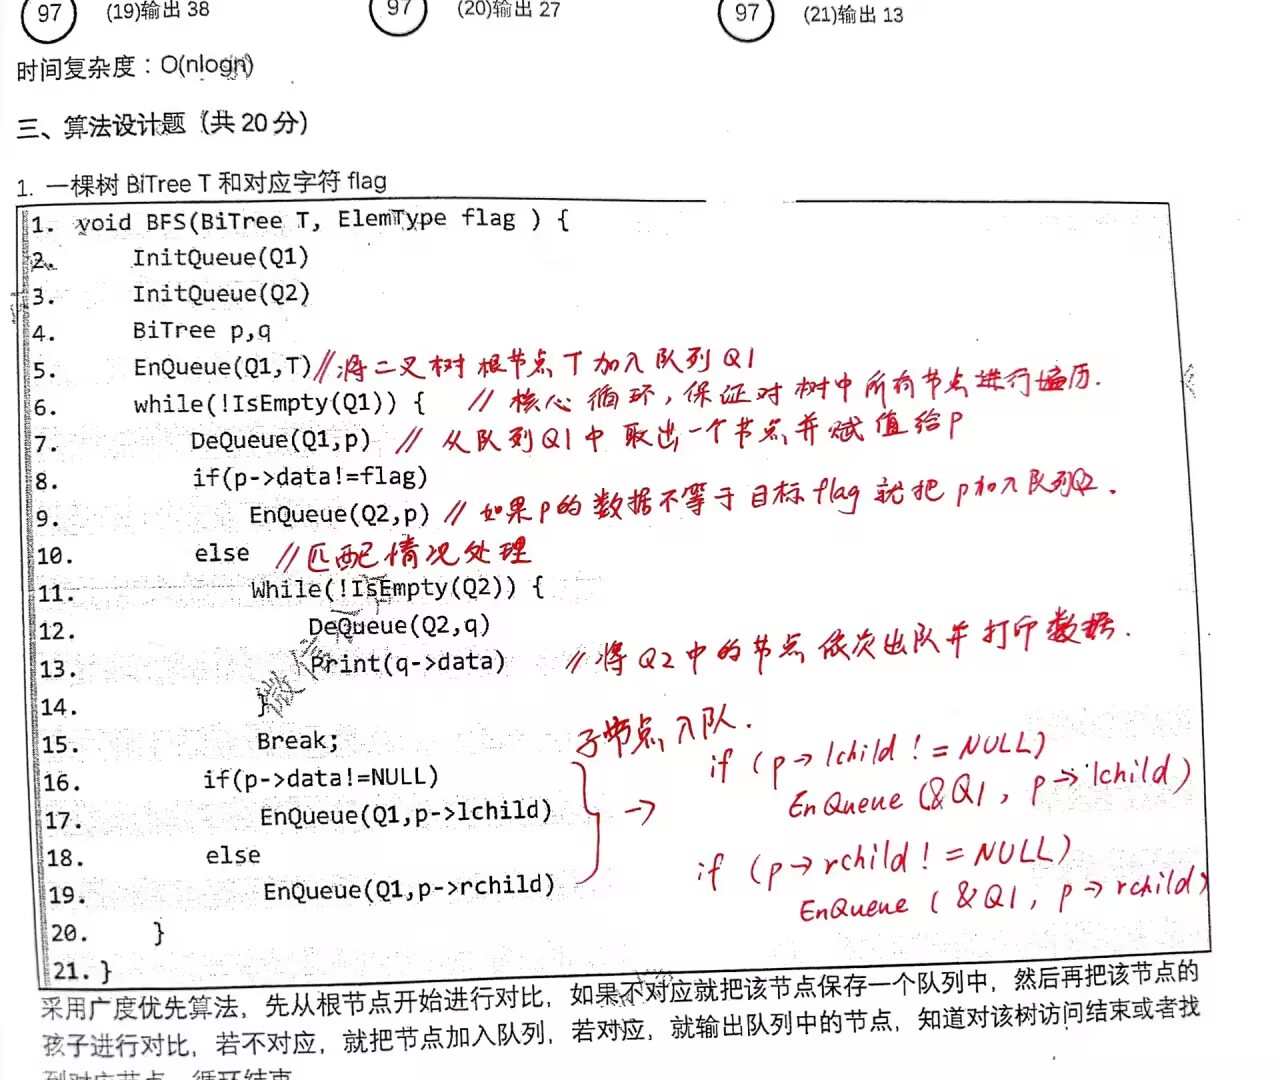 97 (19)输出 38 97 (20)输出 27 97 (21)输出 13
时间复杂度：O(nlogn)
三、算法设计题（共 20 分）
1. 一棵树 BiTree T 和对应字符 flag
1. void BFS(BiTree T, ElemType flag ) {
2. InitQueue(Q1)
3. InitQueue(Q2)
4. BiTree p,q
5. EnQueue(Q1,T) //将二叉树根节点T加入队列Q1
6. while(!IsEmpty(Q1)) { //核心循环,保证对树中所有节点进行遍历.
7. DeQueue(Q1,p) //从队列Q1中取出一个节点并赋值给P
8. if(p->data!=flag)
9. EnQueue(Q2,p) //如果P的数据不等于目标flag就把p加入队列Q2.
10. else //匹配情况处理
11. While(!IsEmpty(Q2)) {
12. DeQueue(Q2,q)
13. Print(q->data) //将Q2中的节点依次出队并打印数据.
14. }
15. Break; 子节点入队.
16. if(p->data!=NULL) if (p→lchild!=NULL)
17. EnQueue(Q1,p->lchild) → EnQueue(&Q1, p→lchild)
18. else if (p→rchild!=NULL)
19. EnQueue(Q1,p->rchild) EnQueue(&Q1, p→rchild)
20. }
21. }
采用广度优先算法，先从根节点开始进行对比，如果不对应就把该节点保存一个队列中，然后再把该节点的
孩子进行对比，若不对应，就把节点加入队列，若对应，就输出队列中的节点，知道对该树访问结束或者找
到对应节点，循环结束
微信